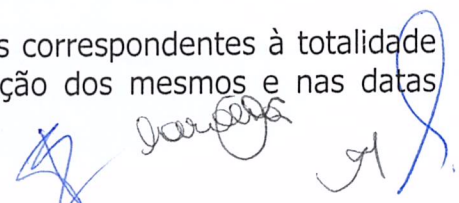 s correspondentes à totalidade
ção dos mesmos e nas datas